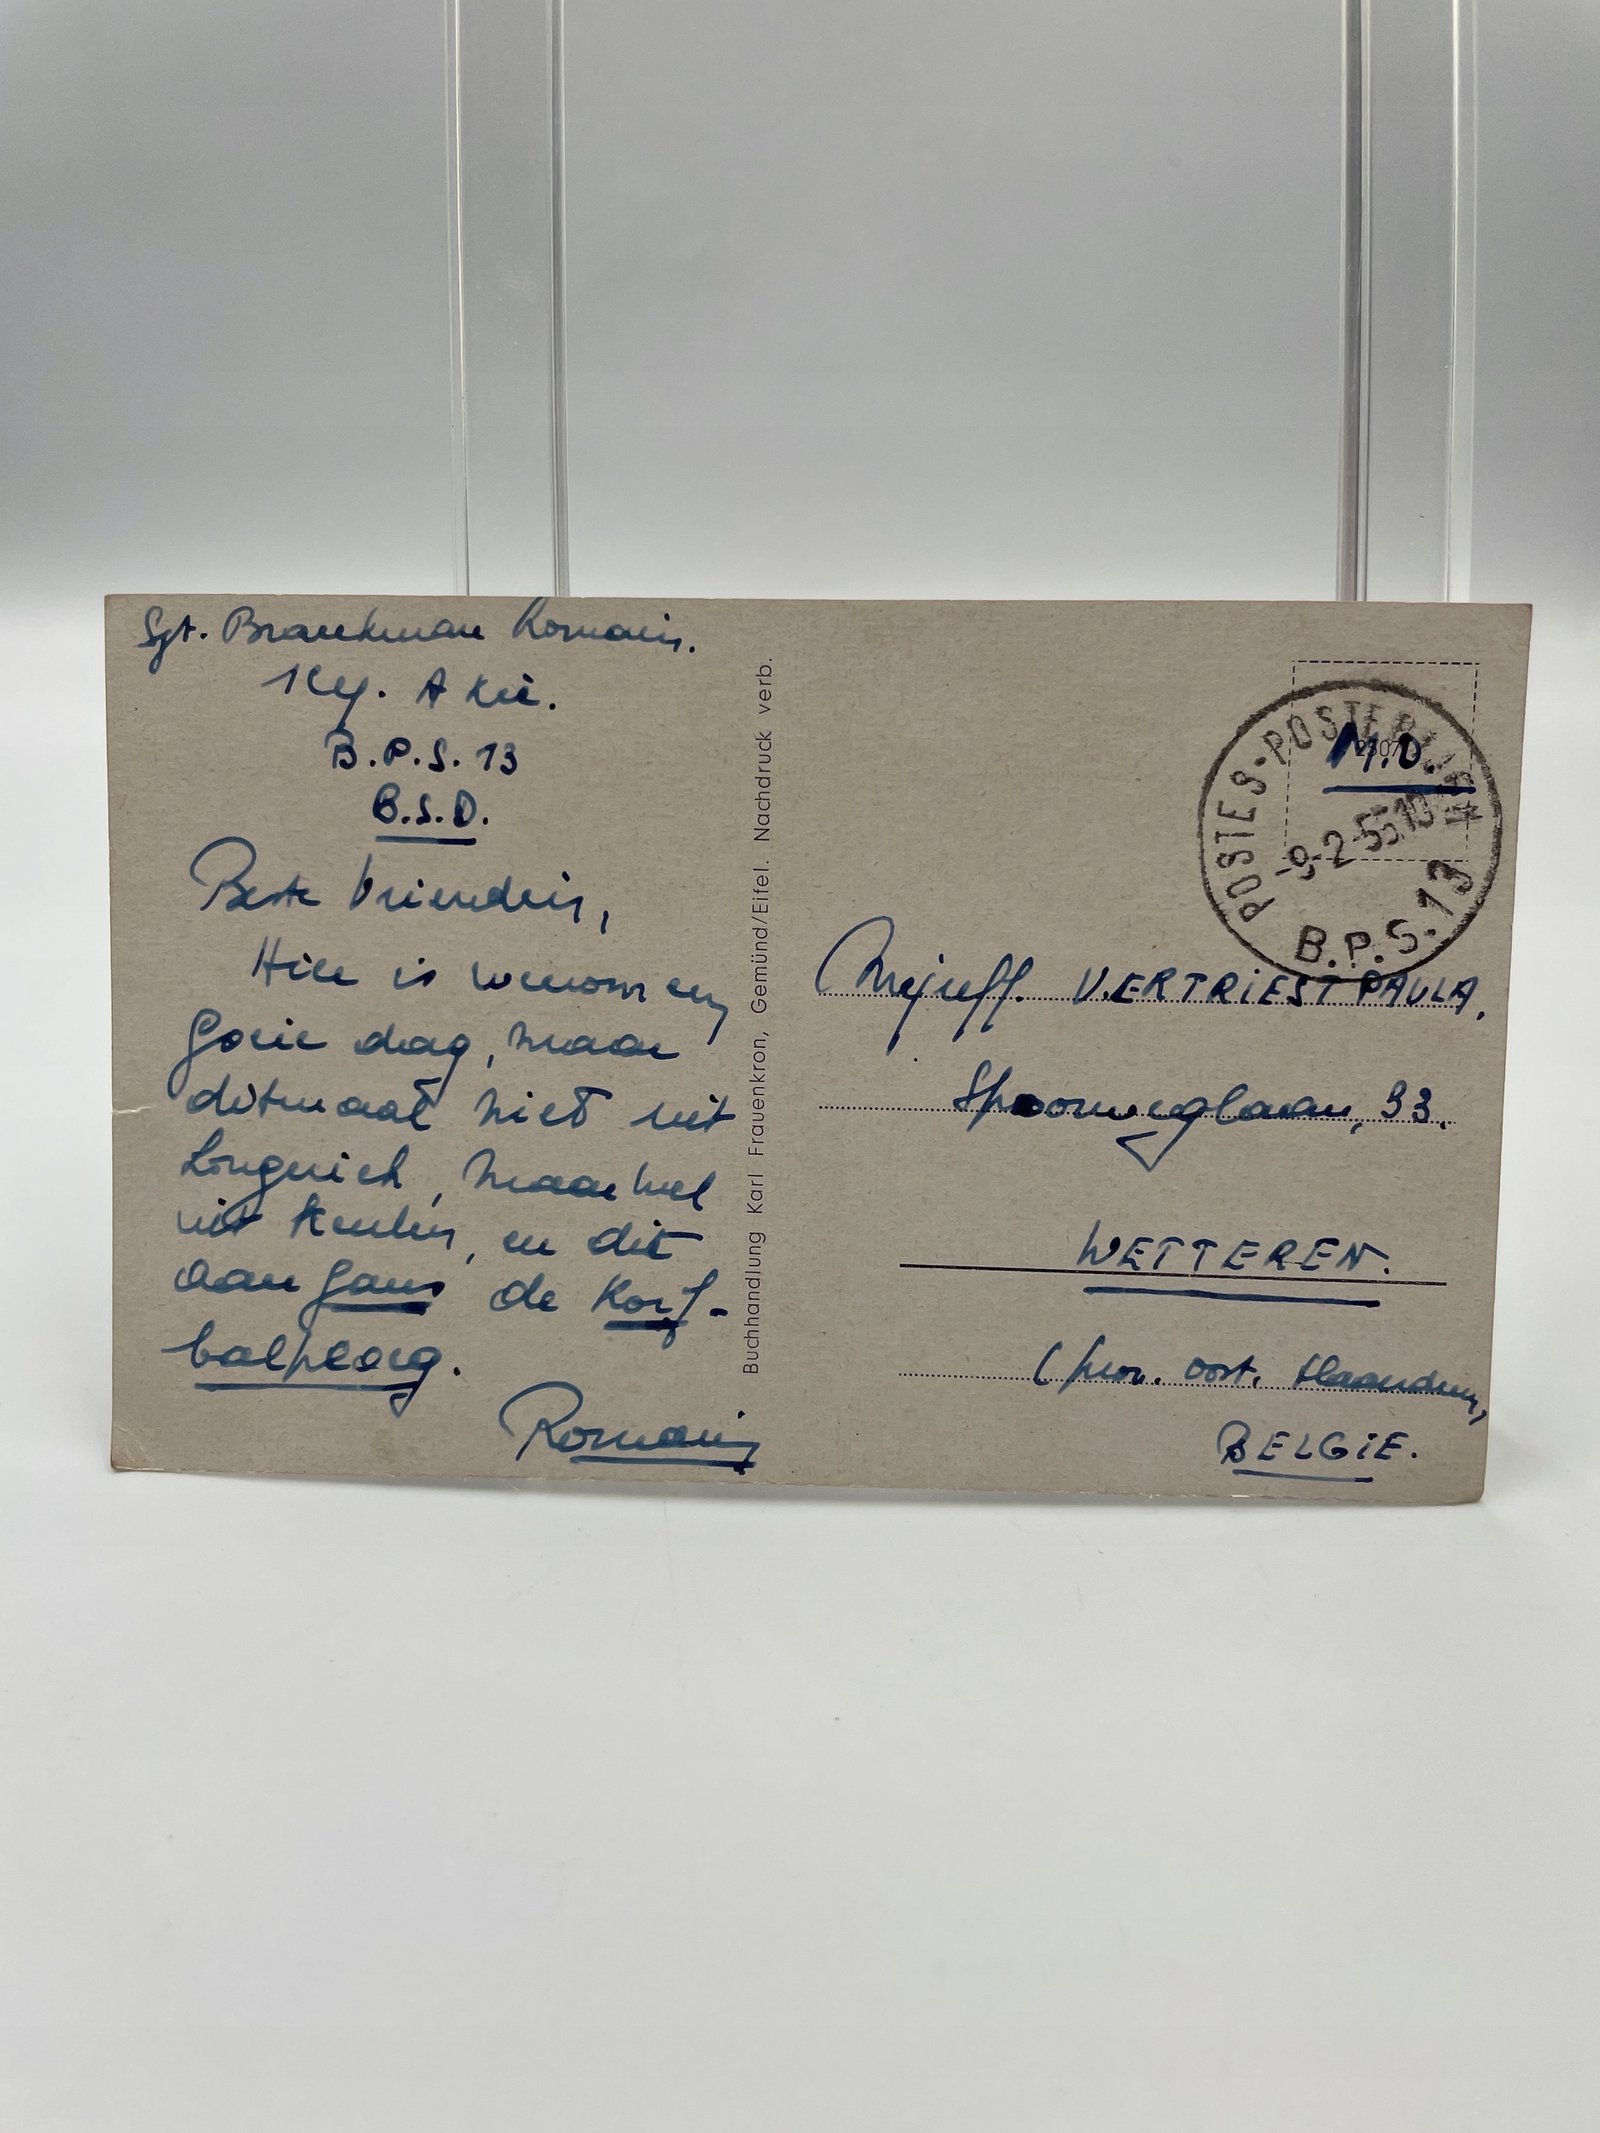 Sgt. Braeckman Romain.
Cy. A
B.P.S. 13
B.S.D.
Beste Vriendin,
Hier is weerom een
goeie dag, maar
ditmaal niet uit
Longerich, maar wel
uit Keulen, en dit
aan gans de Korf-
balploeg.
Romain
Buchhandlung Karl Frauenkron, Gemünd/Eifel. Nachdruck verb.
M.D.
POSTES-POSTERIJEN
-9-2-55 10
B.P.S.13
Mejuff. VERTRIEST PAULA,
Spoorweglaan, 93.
WETTEREN.
(prov. Oost. Vlaanderen,
BELGIE.